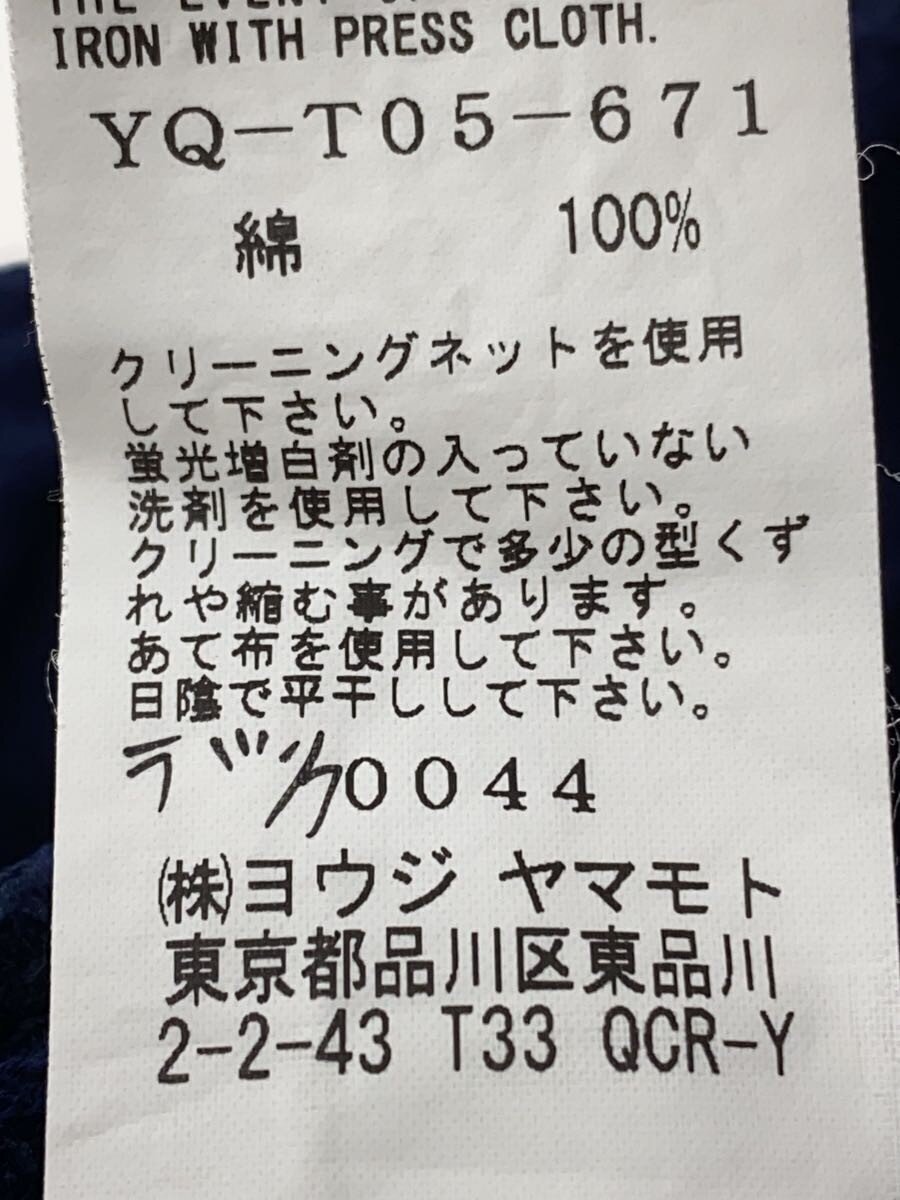 THE EVENT
IRON WITH PRESS CLOTH.
YQ-T05-671
綿 100%
クリーニングネットを使用
して下さい。
蛍光増白剤の入っていない
洗剤を使用して下さい。
クリーニングで多少の型くず
れや縮む事があります。
あて布を使用して下さい。
日陰で平干しして下さい。
0044
㈱ヨウジ ヤマモト
東京都品川区東品川
2-2-43 T33 QCR-Y